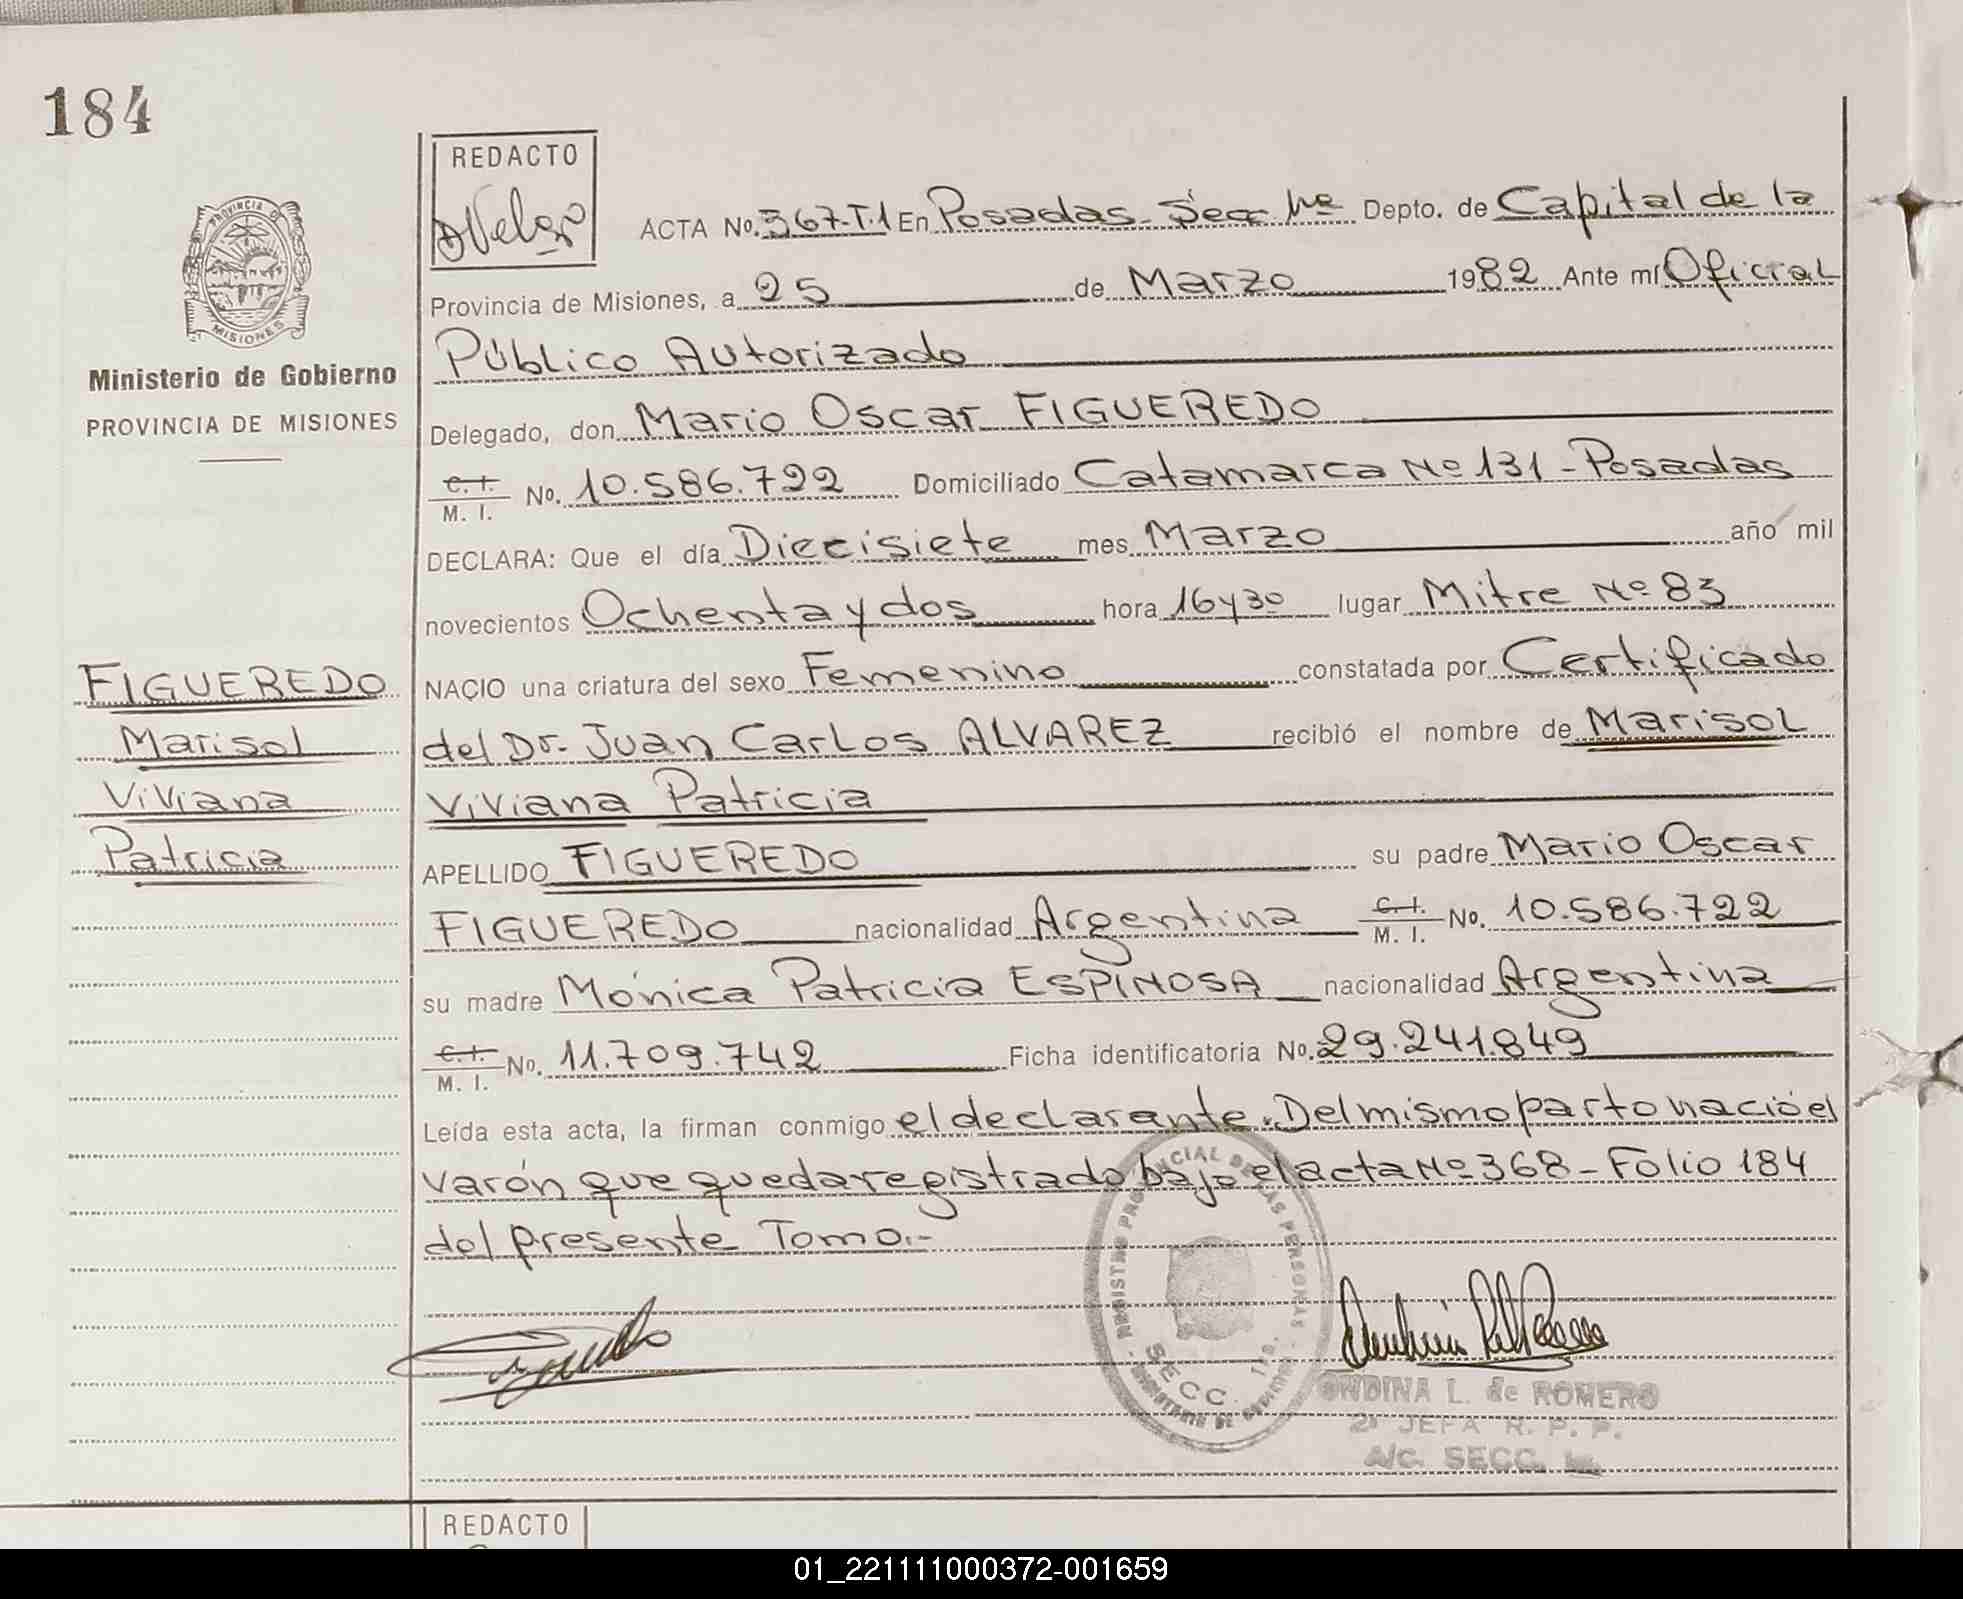 184
REDACTO
ACTA No. 367-T.1 En Posadas - Secc 1ra Depto. de Capital de la
Provincia de Misiones, a 25 de Marzo 1982 Ante mí Oficial
Público Autorizado
PROVINCIA DE
MISIONES
Ministerio de Gobierno
PROVINCIA DE MISIONES
Delegado, don Mario Oscar FIGUEREDO
C. I. M. I. No. 10.586.722 Domiciliado Catamarca Nº 131 - Posadas
DECLARA: Que el día Diecisiete mes Marzo año mil
novecientos Ochenta y dos hora 16 y 30 lugar Mitre Nº 83
NACIO una criatura del sexo Femenino constatada por Certificado
del Dr. Juan Carlos ALVAREZ recibió el nombre de Marisol
Viviana Patricia
APELLIDO FIGUEREDO su padre Mario Oscar
FIGUEREDO nacionalidad Argentina C. I. M. I. No. 10.586.722
su madre Mónica Patricia ESPINOSA nacionalidad Argentina
C. I. M. I. No. 11.709.742 Ficha identificatoria No. 29.241.849
Leída esta acta, la firman conmigo el declarante. Del mismo parto nació el
varón que queda registrado bajo el acta Nº 368 - Folio 184
del presente Tomo.-
FIGUEREDO
Marisol
Viviana
Patricia
REGISTRO PROVINCIAL DE LAS PERSONAS
SECC. 1ra.
ONDINA L. de ROMERO
2ª JEFA R. P. P.
A/C. SECC. 1a.
REDACTO
01_221111000372-001659